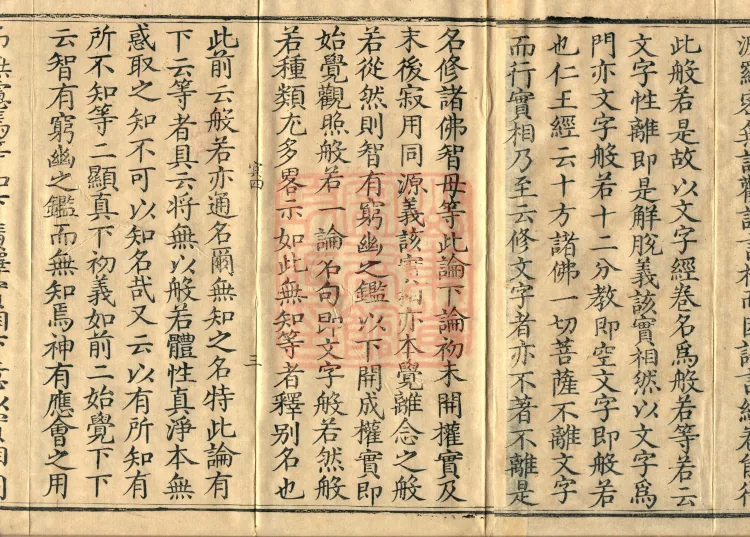 此般若是故以文字經卷名爲般若等若云
文字性離即是解脫義該實相然以文字爲
門亦文字般若十二分教即空文字即般若
也仁王經云十方諸佛一切菩薩不離文字
而行實相乃至云修文字者亦不著不離是
名修諸佛智母等此論下論初末開權實及
末後寂用同源義該實相亦本覺離念之般
若從然則智有窮幽之鑑以下開成權實即
始覺觀照般若一論名句即文字般若然般
若種類尤多畧示如此無知等者釋别名也
寔四
三
此前云般若亦通名爾無知之名特此論有
下云等者具云将無以般若體性真淨本無
惑取之知不可以知名哉又云以有所知有
所不知等二顯真下初義如前二始覺下下
云智有窮幽之鑑而無知焉神有應會之用